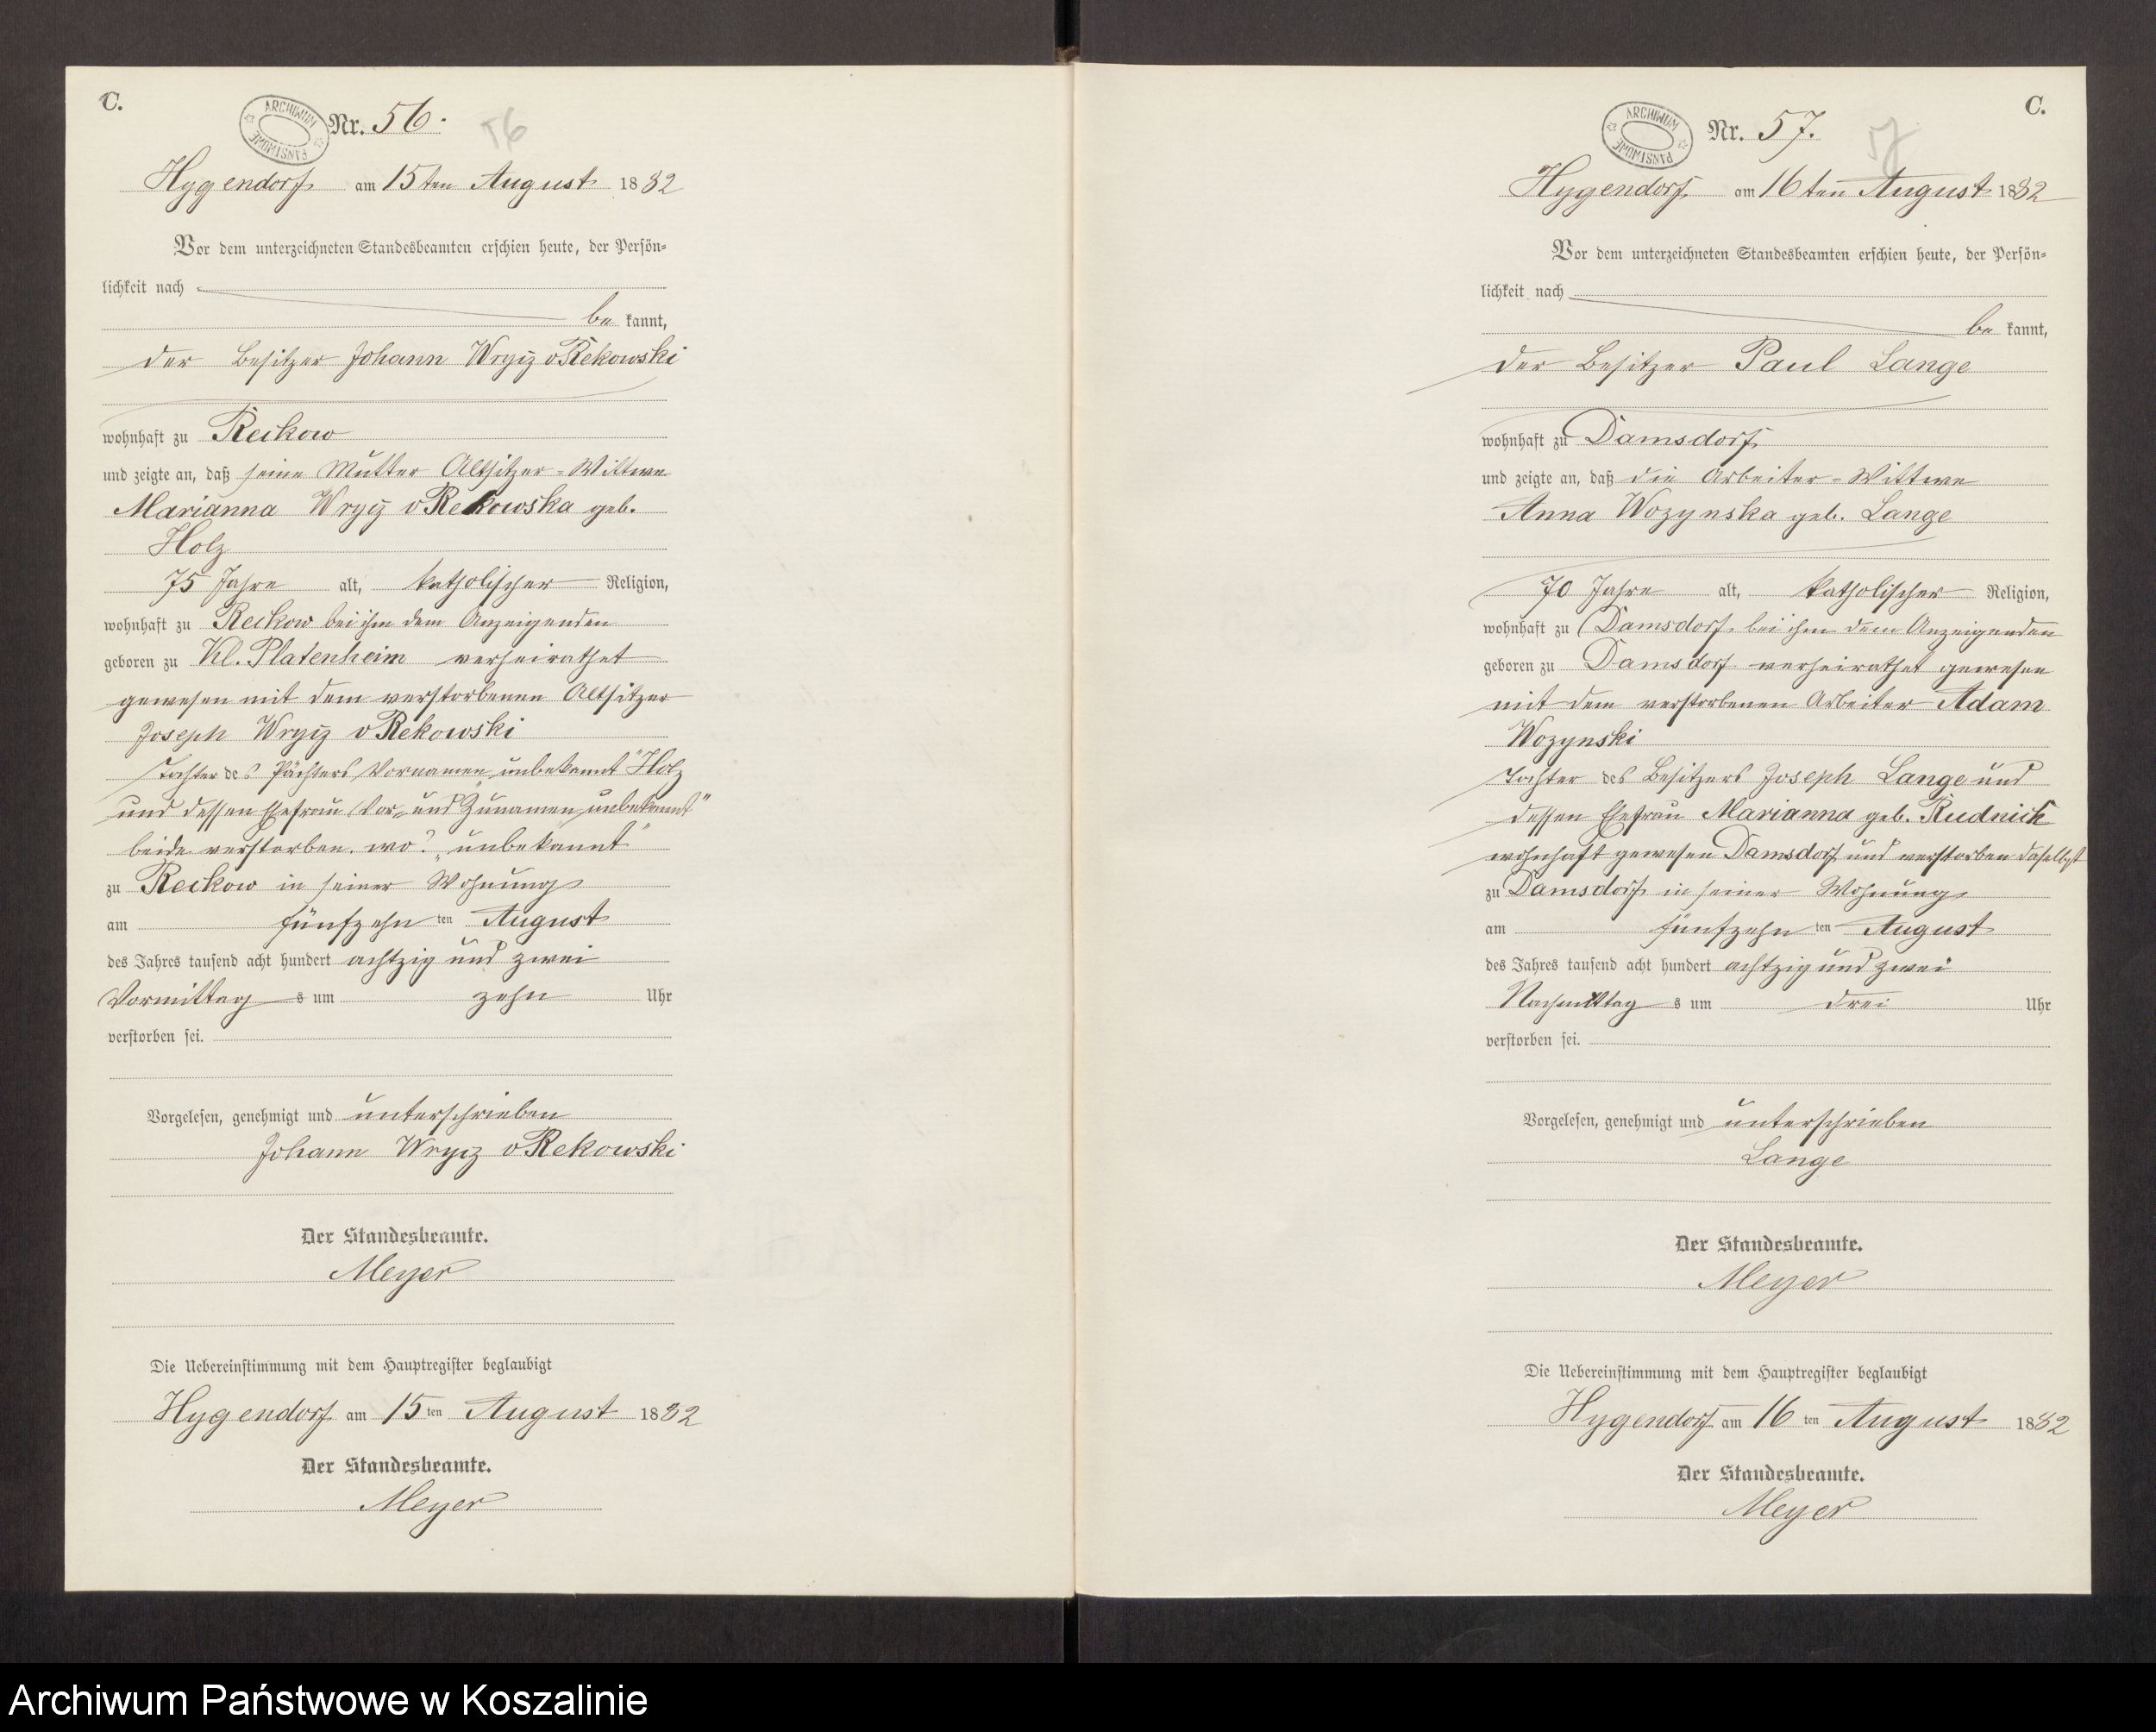 C.
ARCHIWUM PAŃSTWOWE
Nr. 56.
56
Hygendorf am 15ten August 1882
Vor dem unterzeichneten Standesbeamten erschien heute, der Persön-
lichkeit nach
be kannt,
der Besitzer Johann Wrycz v Rekowski
wohnhaft zu Reckow
und zeigte an, daß seine Mutter Altsitzer-Wittwe
Marianna Wrycz v Rekowska geb.
Holz
75 Jahre alt, katholischer Religion,
wohnhaft zu Reckow bei ihm dem Anzeigenden
geboren zu Kl. Platenheim verheirathet
gewesen mit dem verstorbenen Altsitzer
Joseph Wrycz v Rekowski
Tochter des Pächters Vornamen „unbekannt" Holz
und dessen Ehefrau Vor- und Zunamen „unbekannt"
beide verstorben. wo? „unbekannt"
zu Reckow in seiner Wohnung
am fünfzehn ten August
des Jahres tausend acht hundert achtzig und zwei
Vormittag s um zehn Uhr
verstorben sei.
Vorgelesen, genehmigt und unterschrieben
Johann Wrycz v Rekowski
Der Standesbeamte.
Meyer
Die Uebereinstimmung mit dem Hauptregister beglaubigt
Hygendorf am 15 ten August 1882
Der Standesbeamte.
Meyer
C.
ARCHIWUM PAŃSTWOWE
Nr. 57.
57
Hygendorf am 16ten August 1882
Vor dem unterzeichneten Standesbeamten erschien heute, der Persön-
lichkeit nach
be kannt,
der Besitzer Paul Lange
wohnhaft zu Damsdorf
und zeigte an, daß die Arbeiter-Wittwe
Anna Wozynska geb. Lange
70 Jahre alt, katholischer Religion,
wohnhaft zu Damsdorf, bei ihm dem Anzeigenden
geboren zu Damsdorf verheirathet gewesen
mit dem verstorbenen Arbeiter Adam
Wozynski
Tochter des Besitzers Joseph Lange und
dessen Ehefrau Marianna geb. Rudnick
wohnhaft gewesen Damsdorf und verstorben daselbst
zu Damsdorf in seiner Wohnung
am fünfzehn ten August
des Jahres tausend acht hundert achtzig und zwei
Nachmittag s um drei Uhr
verstorben sei.
Vorgelesen, genehmigt und unterschrieben
Lange
Der Standesbeamte.
Meyer
Die Uebereinstimmung mit dem Hauptregister beglaubigt
Hygendorf am 16 ten August 1882
Der Standesbeamte.
Meyer
Archiwum Państwowe w Koszalinie